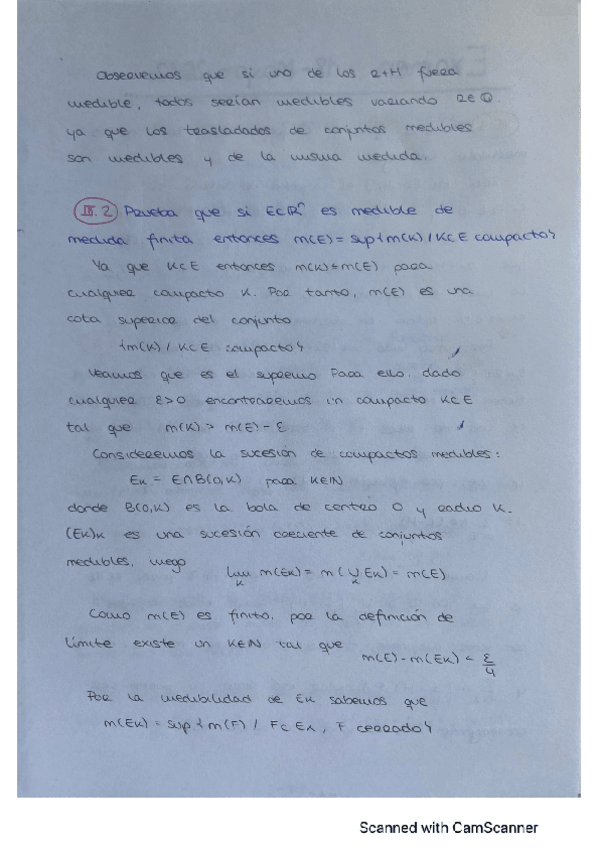 Observemos que si uno de los r+H fuera
medible, todos serían medibles variando r∈Q.
ya que los trasladados de conjuntos medibles
son medibles y de la misma medida.
III.2 Prueba que si E⊂Rⁿ es medible de
medida finita entonces m(E) = sup{m(K) / K⊂E compacto}
Ya que K⊂E entonces m(K)≤m(E) para
cualquier compacto K. Por tanto, m(E) es una
cota superior del conjunto
{m(K) / K⊂E compacto}
Veamos que es el supremo Para ello, dado
cualquier ε>0 encontraremos un compacto K⊂E
tal que m(K) > m(E) - ε
Consideremos la sucesión de compactos medibles:
Ek = E∩B(0,K) para K∈N
donde B(0,K) es la bola de centro 0 y radio K.
(Ek)k es una sucesión creciente de conjuntos
medibles, luego lim m(Ek) = m(∪ Ek) = m(E)
k k
Como m(E) es finito, por la definición de
límite existe un K∈N tal que
m(E) - m(Ek) < ε/4
Por la medibilidad de Ek sabemos que
m(Ek) = sup{m(F) / F⊂Ek, F cerrado}
Scanned with CamScanner